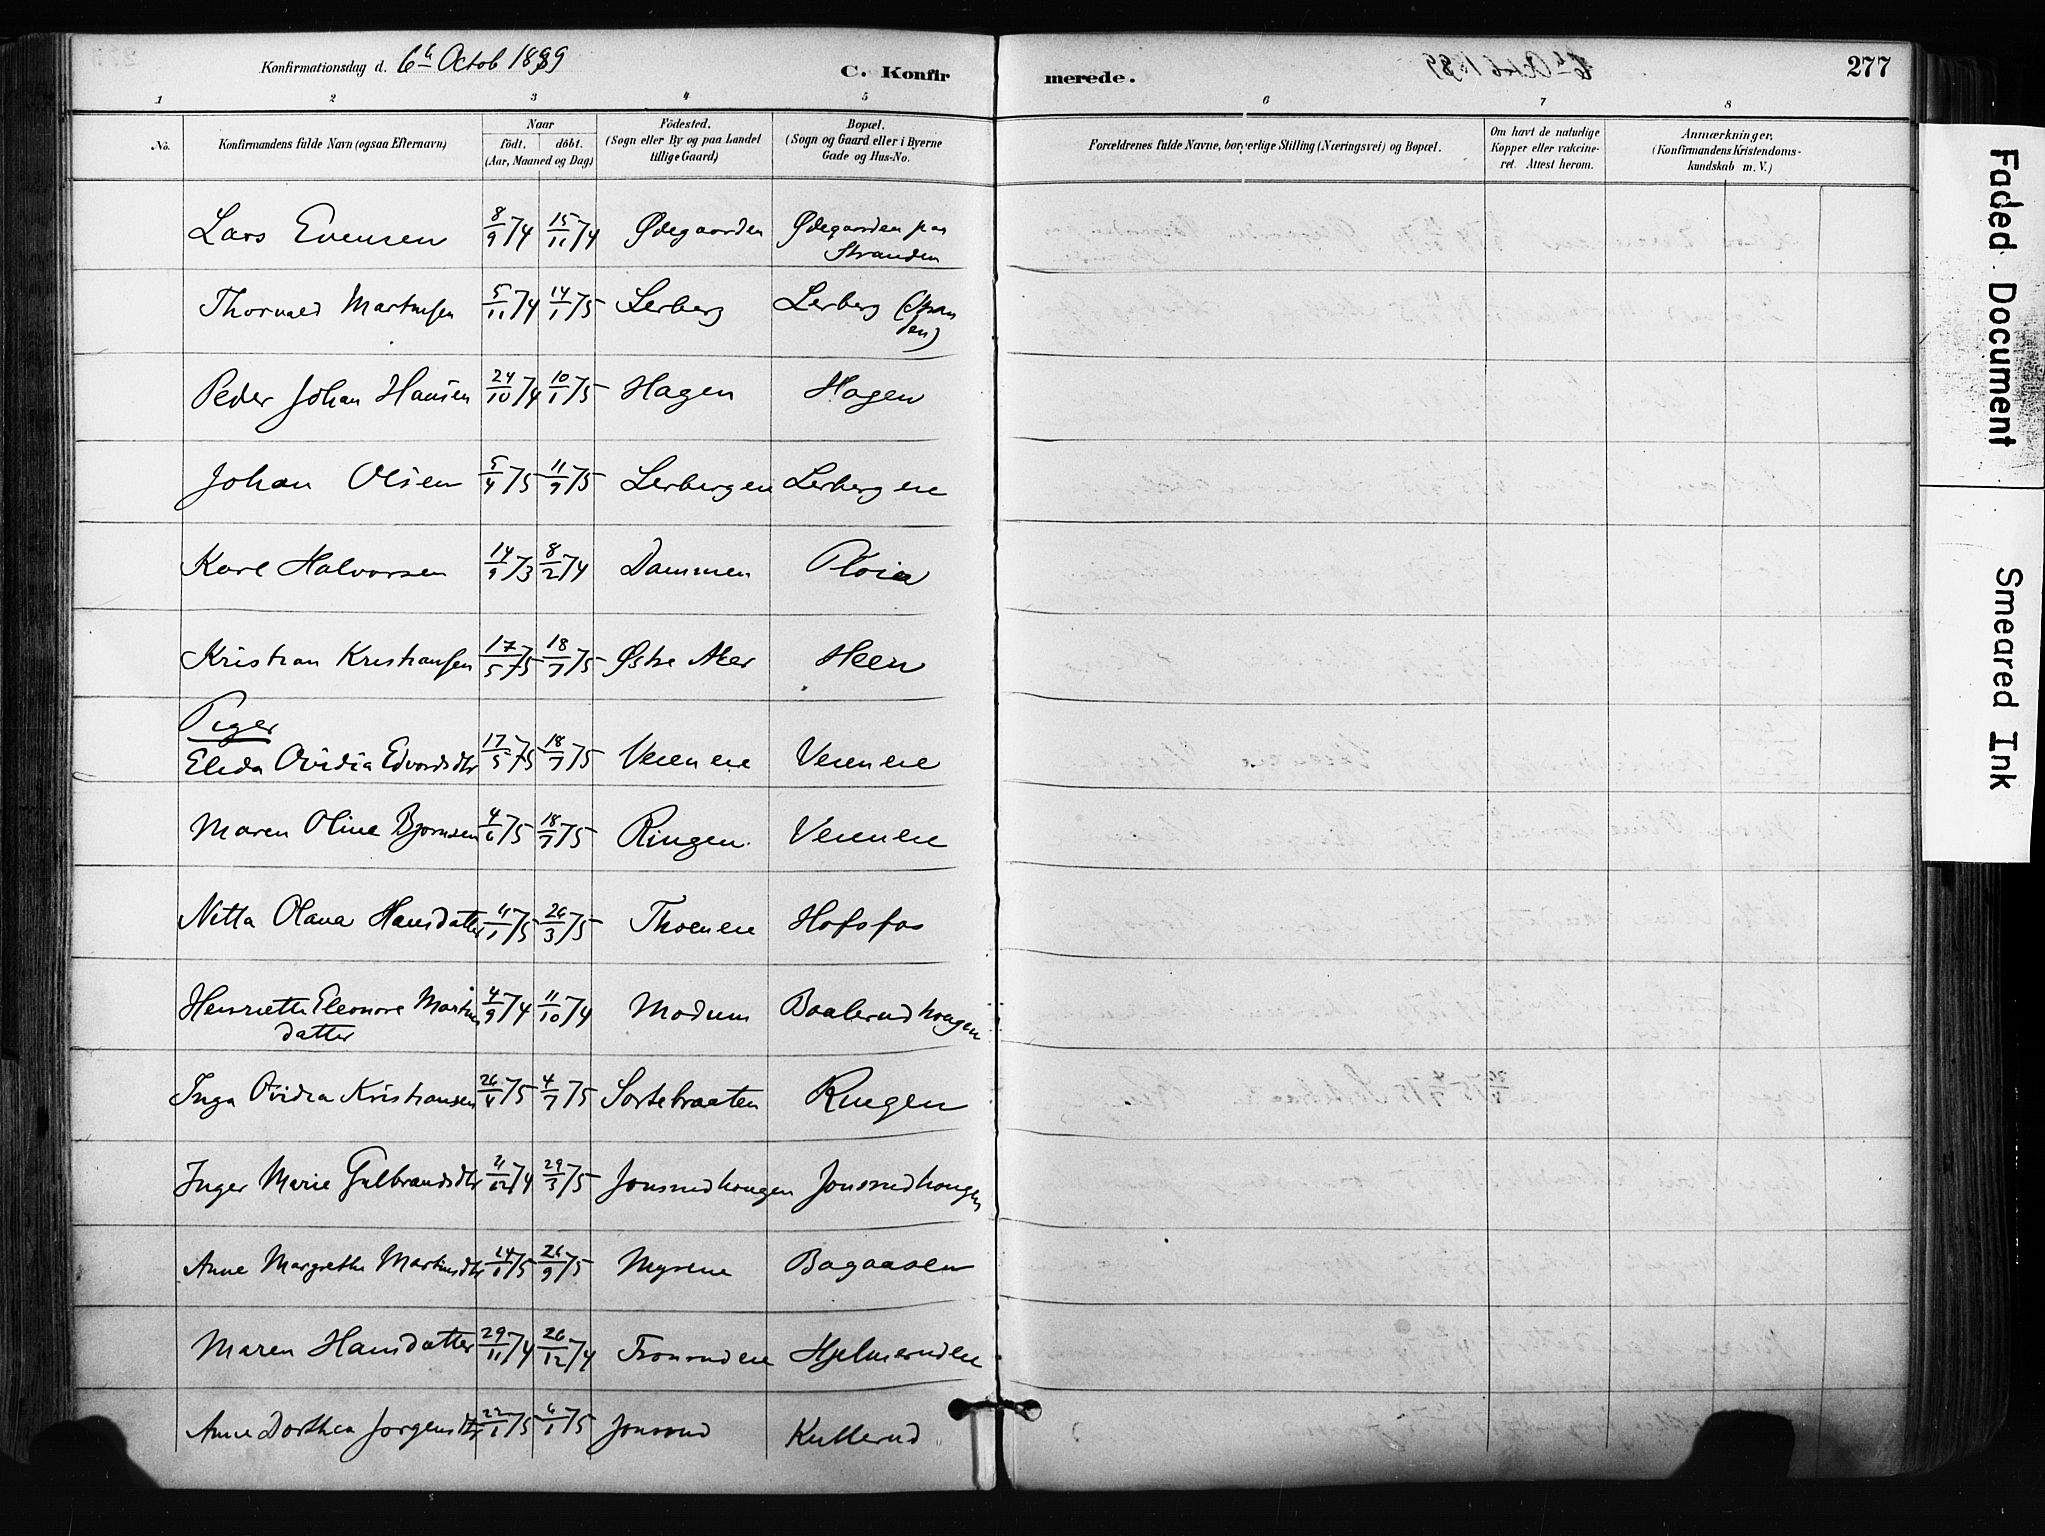 Konfirmationsdag d. 6h Octob 1889
C. Konfirmerede.
277
1 2 3 4 5 6 7 8
No.
Konfirmandens fulde Navn (ogsaa Efternavn)
Naar
födt. döbt.
(Aar, Maaned og Dag)
Födested.
(Sogn eller By og paa Landet
tillige Gaard)
Bopæl.
(Sogn og Gaard eller i Byerne
Gade og Hus-No.
Forældrenes fulde Navne, borgerlige Stilling (Næringsvei) og Bopæl.
Om havt de naturlige
Kopper eller vakcine-
ret. Attest herom.
Anmærkninger.
(Konfirmandens Kristendoms-
kundskab m. V.)
Lars Evensen 8/9 74 15/11 74 Ødegaarden Ødegaarden paa
Stranden
Thorvald Martinsen 5/11 74 14/1 75 Lerberg Lerberg (Stran
den)
Peder Johan Hansen 24/10 74 10/1 75 Hagen Hagen
Johan Olsen 5/4 75 11/9 75 Lerbergene Lerbergene
Karl Halvorsen 14/9 73 8/2 74 Dammen
Kristian Kristiansen 17/5 75 18/7 75 Østre Aker Heen
Piger
Elida Ovidia Edvardsdtr 17/5 75 18/7 75 Veienene Veienene
Maren Oline Bjørnsen 4/6 75 18/7 75 Ringen Veienene
Nitta Olava Hansdatter 11/1 75 26/3 75 Thoenene Hofsfos
Henriette Eleonore Martins
datter 4/9 74 11/10 74 Modum Baalerudhougen
Inga Ovidia Kristiansen 26/4 75 4/7 75 Sortebraaten Ringen
Inger Marie Gulbrandsdtr 74 29/3 75 Jonsrudhougen Jonsrudhougen
Anne Margrethe Martinsdtr 75 26/9 75 Myrene Bagaasen
Maren Hansdatter 29/11 74 26/12 74 Hjelmerudene
Anne Dorthea Jørgensdtr 22/1 75 75 Jonsrud Kullerud
Faded Document
Smeared Ink